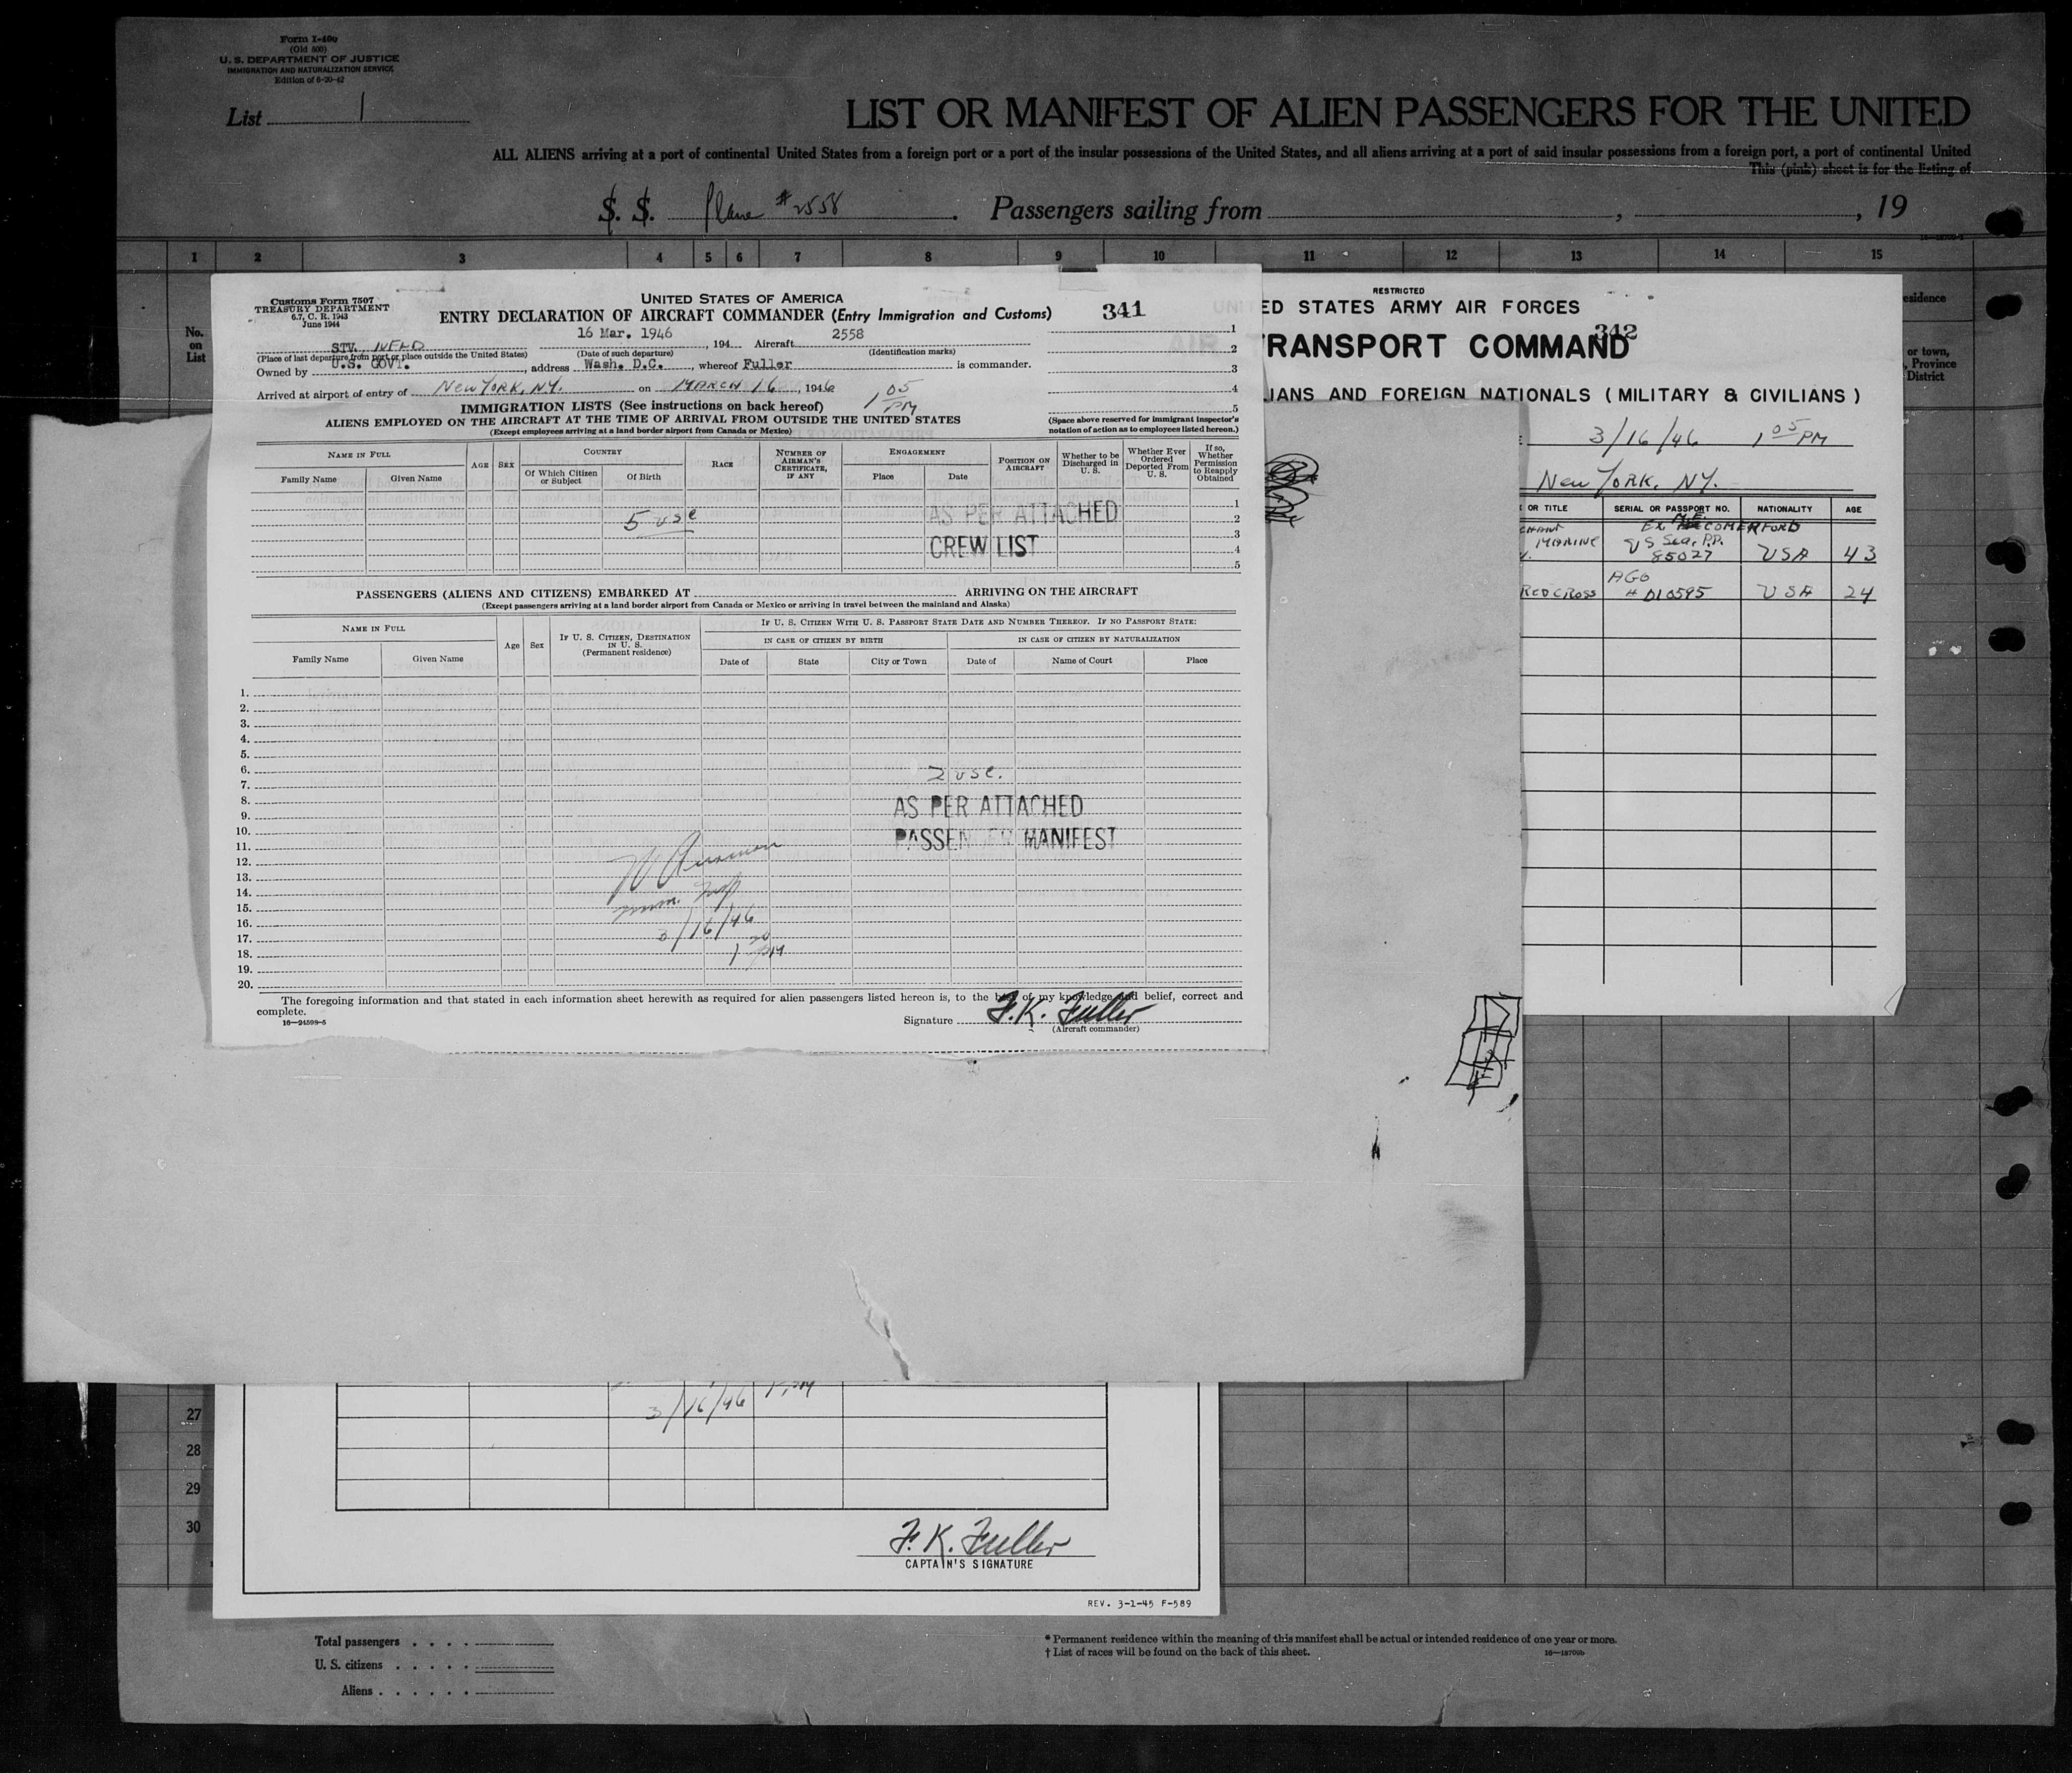 Form I-400
(Old 500)
U. S. DEPARTMENT OF JUSTICE
IMMIGRATION AND NATURALIZATION SERVICE
Edition of 6-20-42
List 1
LIST OR MANIFEST OF ALIEN PASSENGERS FOR THE UNITED
ALL ALIENS arriving at a port of continental United States from a foreign port or a port of the insular possessions of the United States, and all aliens arriving at a port of said insular possessions from a foreign port, a port of continental United
This (pink) sheet is for the listing of
S. S. Plane #2558 . Passengers sailing from , , 19
1 2 3 4 5 6 7 8 9 10 11 12 13 14 15
No.
on
List
Customs Form 7507
TREASURY DEPARTMENT
6.7, C. R. 1943
June 1944
UNITED STATES OF AMERICA
ENTRY DECLARATION OF AIRCRAFT COMMANDER (Entry Immigration and Customs)
341
STV. NFLD 16 Mar. 1946, 194 Aircraft 2558
(Place of last departure from port or place outside the United States) (Date of such departure) (Identification marks)
Owned by U.S. GOVT., address Wash. D.C., whereof Fuller is commander.
Arrived at airport of entry of New York, NY. on MARCH 16, 1946 1 05 PM
IMMIGRATION LISTS (See instructions on back hereof)
ALIENS EMPLOYED ON THE AIRCRAFT AT THE TIME OF ARRIVAL FROM OUTSIDE THE UNITED STATES
(Except employees arriving at a land border airport from Canada or Mexico)
1
2
3
4
5
(Space above reserved for immigrant inspector's
notation of action as to employees listed hereon.)
NAME IN FULL
Family Name Given Name
AGE SEX
COUNTRY
Of Which Citizen
or Subject
Of Birth
RACE
NUMBER OF
AIRMAN'S
CERTIFICATE,
IF ANY
ENGAGEMENT
Place Date
POSITION ON
AIRCRAFT
Whether to be
Discharged in
U. S.
Whether Ever
Ordered
Deported From
U. S.
If so,
Whether
Permission
to Reapply
Obtained
1
2
3
4
5
5 usc
AS PER ATTACHED
CREW LIST
PASSENGERS (ALIENS AND CITIZENS) EMBARKED AT ARRIVING ON THE AIRCRAFT
(Except passengers arriving at a land border airport from Canada or Mexico or arriving in travel between the mainland and Alaska)
NAME IN FULL
Family Name Given Name
Age Sex
IF U. S. CITIZEN, DESTINATION
IN U. S.
(Permanent residence)
IF U. S. CITIZEN WITH U. S. PASSPORT STATE DATE AND NUMBER THEREOF. IF NO PASSPORT STATE:
IN CASE OF CITIZEN BY BIRTH IN CASE OF CITIZEN BY NATURALIZATION
Date of State City or Town Date of Name of Court Place
1.
2.
3.
4.
5.
6.
7.
8.
9.
10.
11.
12.
13.
14.
15.
16.
17.
18.
19.
20.
2 usc.
AS PER ATTACHED
PASSENGER MANIFEST
3/16/46
The foregoing information and that stated in each information sheet herewith as required for alien passengers listed hereon is, to the best of my knowledge and belief, correct and
complete.
16—24598-5
Signature F.K. Fuller
(Aircraft commander)
RESTRICTED
UNITED STATES ARMY AIR FORCES
TRANSPORT COMMAND
342
LIANS AND FOREIGN NATIONALS ( MILITARY & CIVILIANS )
3/16/46 1 05 PM
New York, NY.
OR TITLE SERIAL OR PASSPORT NO. NATIONALITY AGE
MARINE US Sea. P.P.
85027 USA 43
RED CROSS AGO
# D10595 USA 24
esidence
or town,
, Province
District
27
28
29
30
3/16/46
F. K. Fuller
CAPTAIN'S SIGNATURE
REV. 3-1-45 F-589
Total passengers
U. S. citizens
Aliens
* Permanent residence within the meaning of this manifest shall be actual or intended residence of one year or more.
† List of races will be found on the back of this sheet.